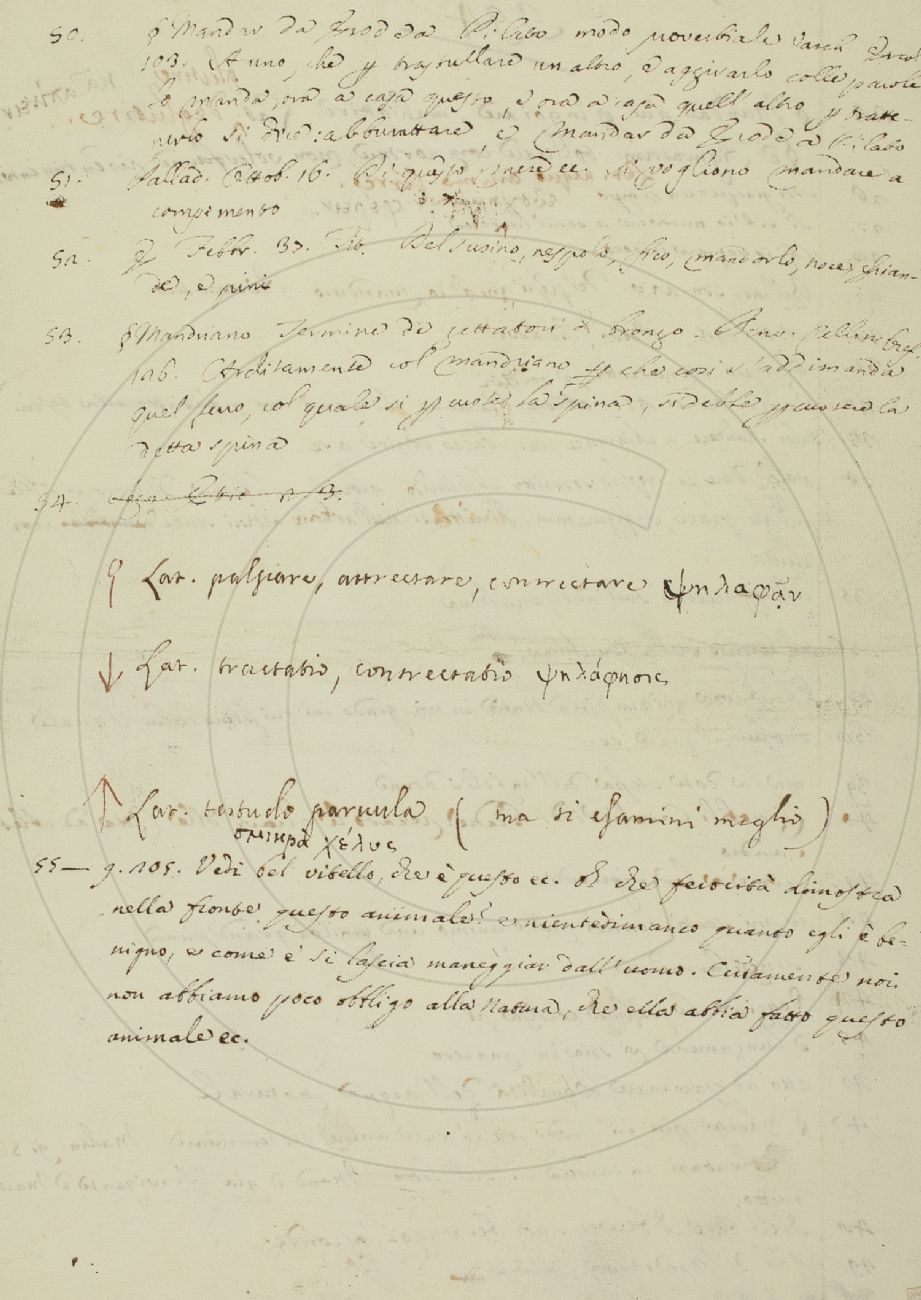 50. § Mandar da Erode a Pilato modo proverbiale Varch. Ercol.
103. A uno, che ꝑ trastullare un altro, e aggirarlo colle parole
lo manda ora a casa questo, e ora a casa quell'altro ꝑ tratte-
nerlo si dice: abburattare, e Mandar da Erode a Pilato
51. Pallad. Ottob. 16. Di questo mese ec. si vogliono mandare a
compimento
52. Febbr. 37. Tit. Del Susino, nespolo, fico, mandorlo, noce, ghian-
de, e pini
53. § Mandriano Termine de gettatori di bronzo. Benv. Cellin. Oref.
126. Arditamente col mandriano ꝑ che così s'addimanda
quel ferro, col quale si ꝑcuote la spina, si debbe ꝑcuotere la
detta spina
54.
§ Lat. palpare, attrectare, contrectare ψηλαφᾷν
↓ Lat. tractatio, contrectatio ψηλάφησις
↑ Lat. testudo parvula ( ma si esamini meglio )
σμικρὰ χέλυς
55— g. 105. Vedi del vitello, che è questo ec. oh che ferocità dimostra
nella fronte questo animale? e nientedimanco quanto egli è be-
nigno, e come e' si lascia maneggiar dall'uomo. Certamente noi
non abbiamo poco obbligo alla Natura, che ella abbia fatto questo
animale ec.